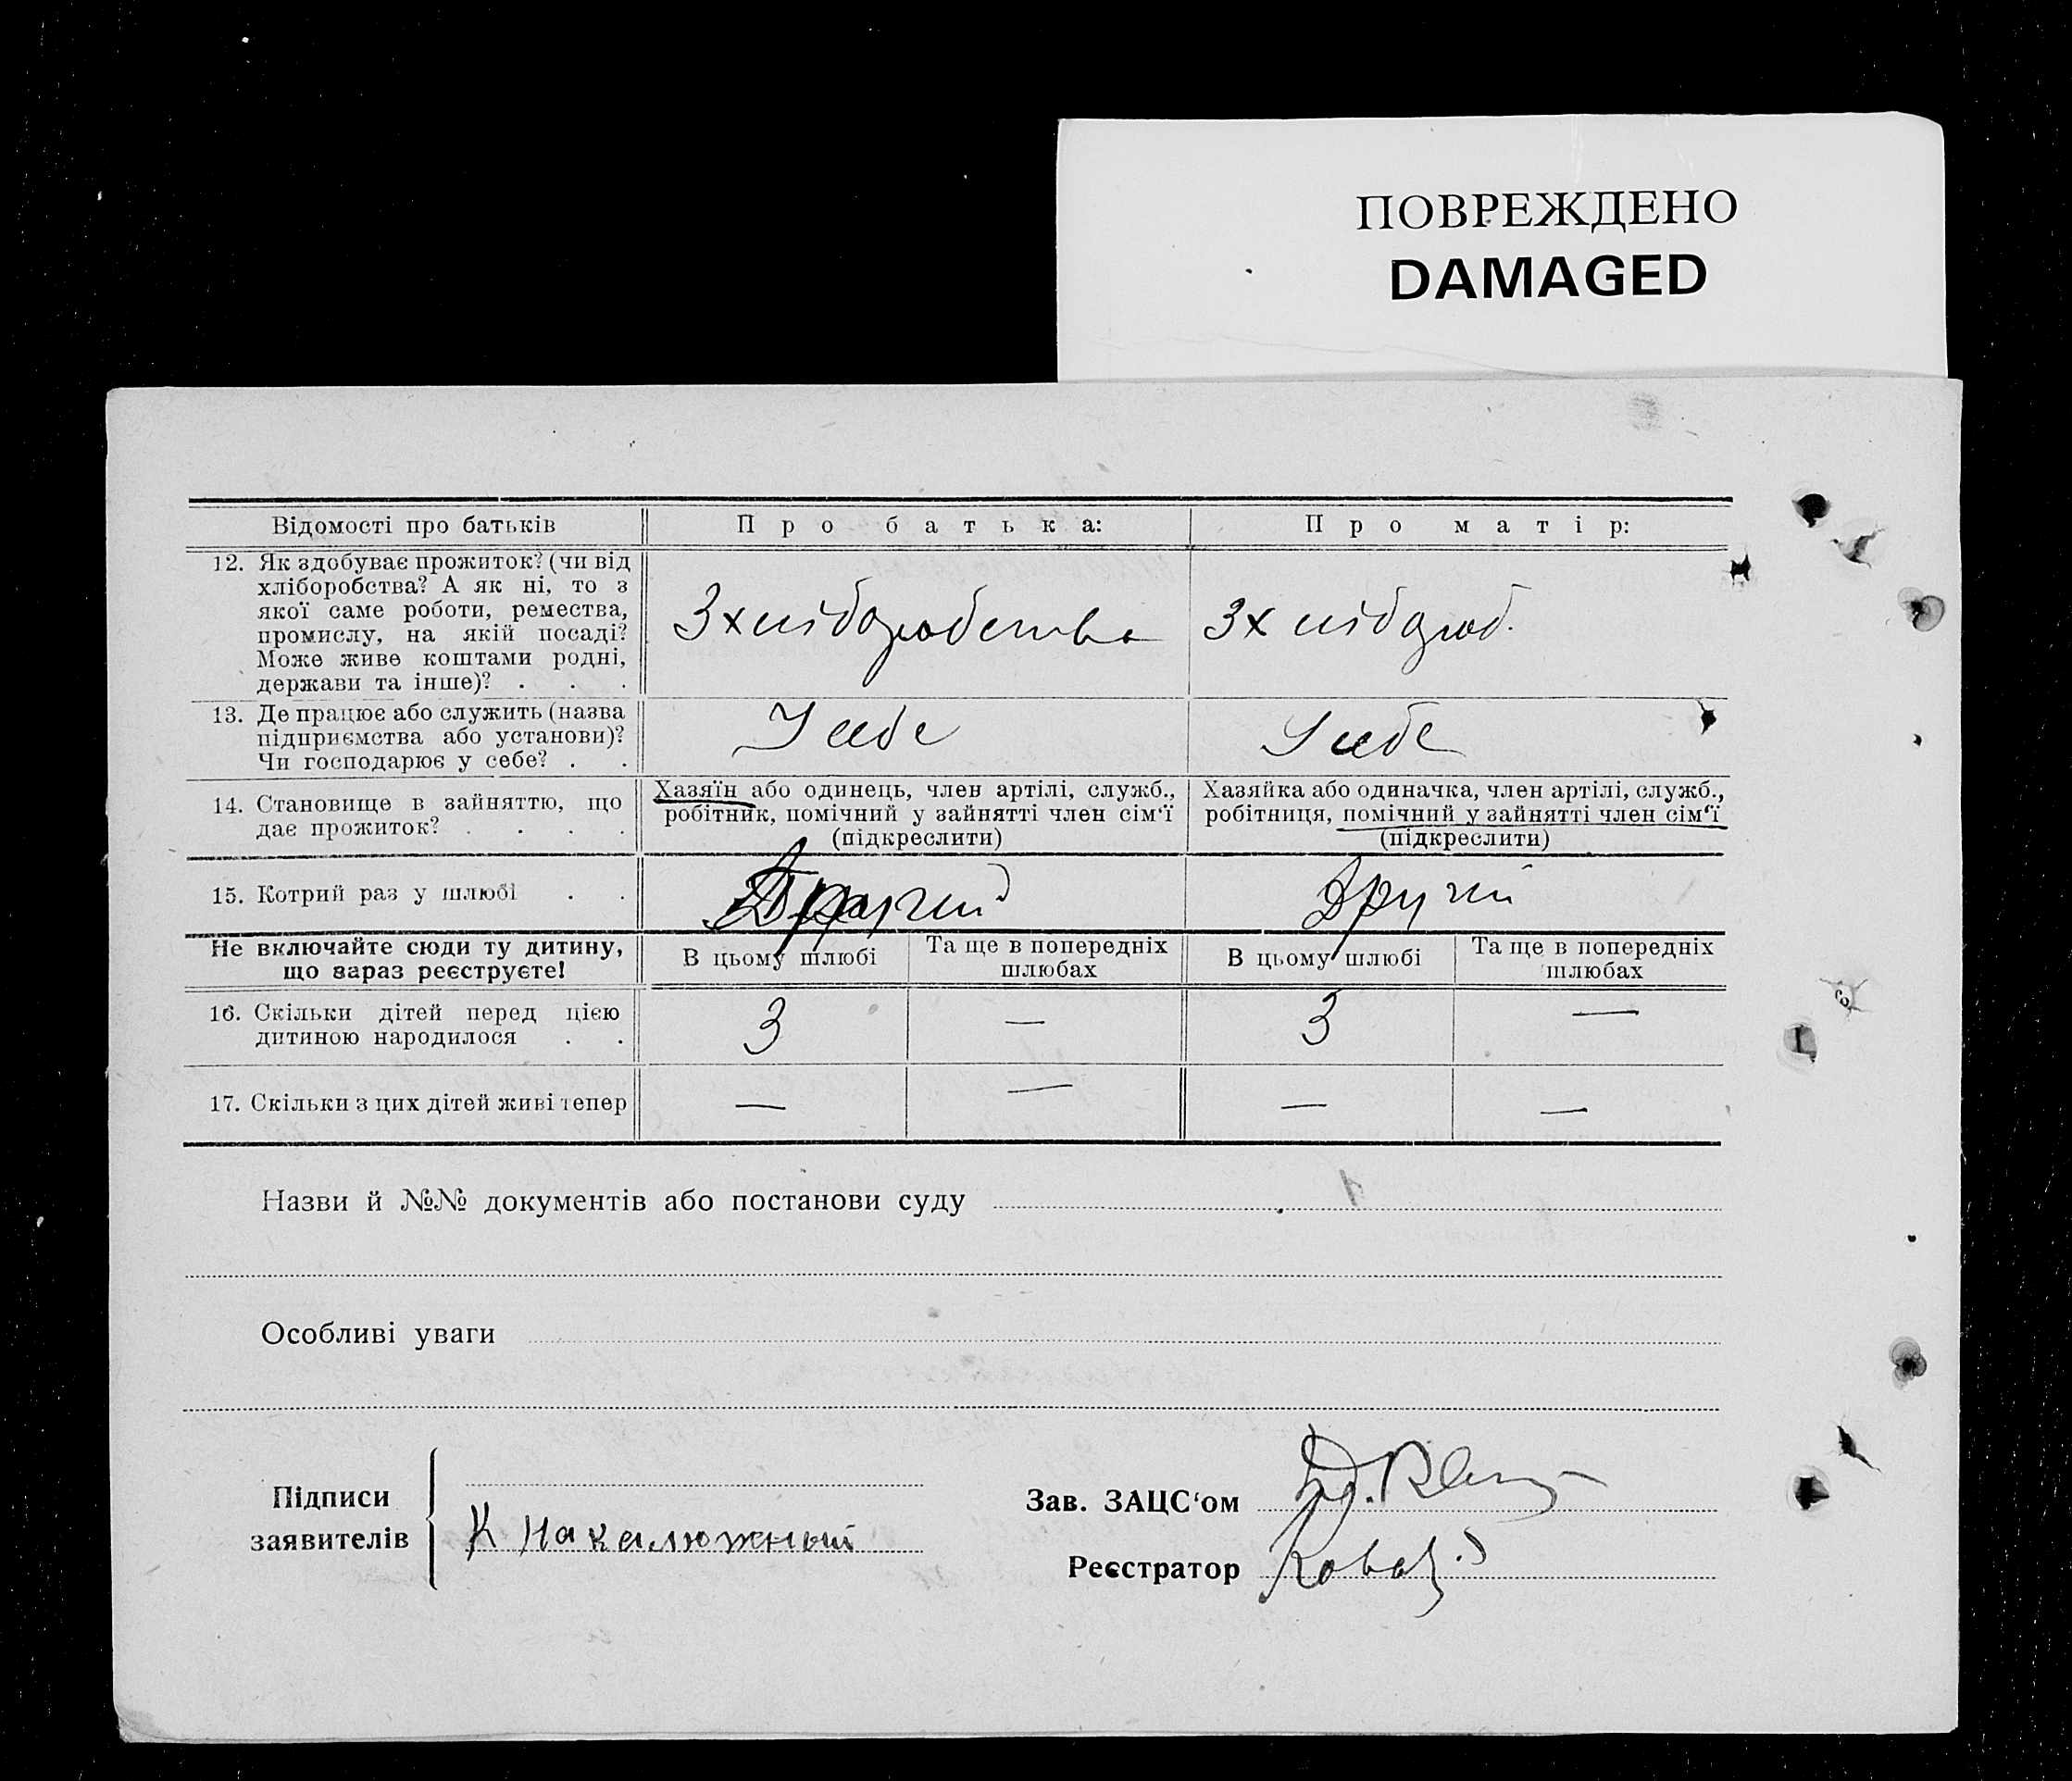 ПОВРЕЖДЕНО
DAMAGED
Відомості про батьків
Про батька:
Про матір:
12. Як здобуває прожиток? (чи від
хліборобства? А як ні, то з
якої саме роботи, ремества,
промислу, на якій посаді?
Може живе коштами родні,
держави та інше)? . . .
З хліборобства
З хлібороб.
13. Де працює або служить (назва
підприємства або установи)?
Чи господарює у себе? . .
У себе
У себе
14. Становище в зайняттю, що
дає прожиток? . . . .
Хазяїн або одинець, член артілі, служб.,
робітник, помічний у зайнятті член сім'ї
(підкреслити)
Хазяйка або одиначка, член артілі, служб.,
робітниця, помічний у зайнятті член сім'ї
(підкреслити)
15. Котрий раз у шлюбі . .
Другий
Другий
Не включайте сюди ту дитину,
що зараз реєструєте!
В цьому шлюбі
Та ще в попередніх
шлюбах
В цьому шлюбі
Та ще в попередніх
шлюбах
16. Скільки дітей перед цією
дитиною народилося . .
3 — 3 —
17. Скільки з цих дітей живі тепер
— — — —
Назви й №№ документів або постанови суду
Особливі уваги
Підписи
заявителів
К Накалюжный
Зав. ЗАЦС'ом
Реєстратор